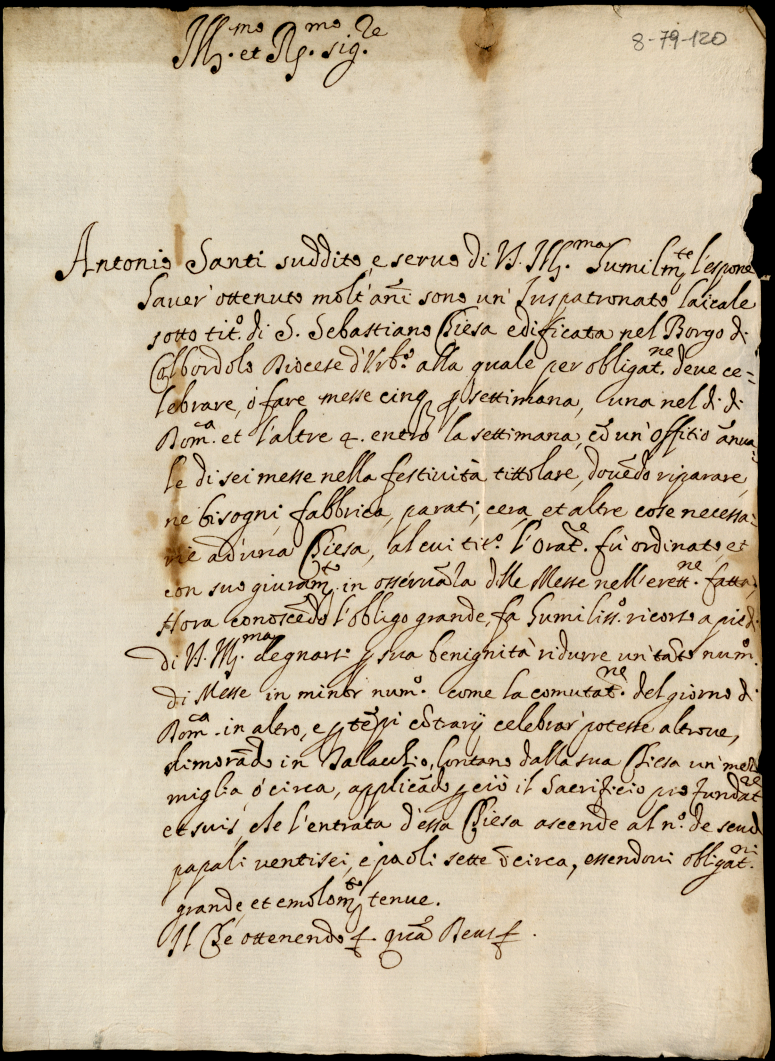 Ill.mo et R.mo Sig.re
8-79-120
Antonio Santi suddito, e servo di V. Ill.ma humilm.te l'espone
haver ottenuto molt'anni sono un Iuspatronato laicale
sotto tit.o di S. Sebastiano Chiesa edificata nel Borgo di
Colbordolo Diocese d'Urb.o alla quale per obligat.ne deve ce=
lebrare, ò fare messe cinq. p settimana, una nel dì di
Dom.ca et l'altre 4. entro la settimana, et un'offitio annua=
le di sei messe nella festività tittolare, dovendo riparare,
ne bisogni, fabbrica, parati, cera, et altre cose necessa=
rie ad una Chiesa, al cui tit.o l'Orat.e fù ordinato, et
con suo giuram.to in osservanza delle Messe nell'erett.ne fatta,
Hora conoscendo l'obligo grande, fa humiliss.o ricorso a piedi
di V. Ill.ma degnarsi p sua benignità ridurre un tanto num.o
di Messe in minor num.o come la comutat.ne del giorno di
Dom.ca in altro, e p tempi contrarij celebrar potesse altrove,
dimorando in Talacchio, lontano dalla sua Chiesa un mezzo
miglia ò circa, applicando p ciò il Sacrificio pro fundat.re
et suis, che l'entrata d'essa Chiesa ascende al n.o de scudi
papali ventisei, e paoli sette ò circa, essendovi obligat.ni
grande, et emolom.to tenue.
Il Che ottenendo etc. quam Deus etc.